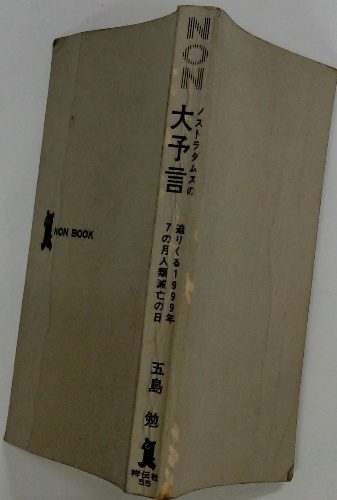 NON
ノストラダムスの
大予言
迫りくる1999年
7の月人類滅亡の日
五島 勉
祥伝社
55
NON BOOK